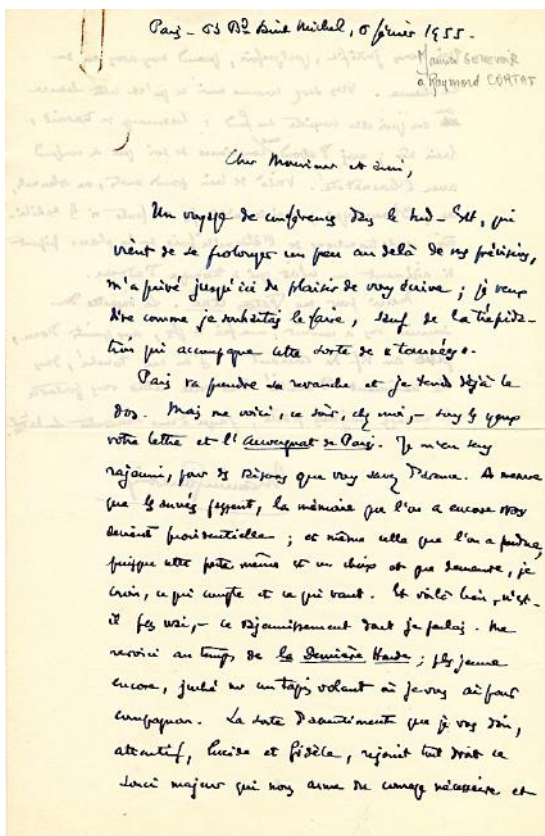 Paris - 63 Bd Saint Michel, 6 février 1955.
Maurice GENEVOIX
à Raymond CORTAT
Cher Monsieur et ami,
Un voyage de conférences dans le Sud-Est, qui
vient de se prolonger un peu au delà de mes prévisions,
m'a privé jusqu'ici du plaisir de vous écrire ; je veux
dire comme je souhaitais le faire, sauf de la trépida-
tion qui accompagne cette sorte de « tournées ».
Paris va prendre sa revanche et je tends déjà le
dos. Mais me voici, ce soir, chez moi, - sous les yeux
votre lettre et l'Auvergnat de Paris. Je m'en sens
rajeuni, pour des raisons que vous savez d'avance. A mesure
que les années passent, la mémoire que l'on a encore
devient providentielle ; et même celle que l'on a perdue,
puisque cette perte même est un choix et que demeure, je
crois, ce qui compte et ce qui vaut. Et voilà bien, n'est-
il pas vrai, - ce rajeunissement dont je parlais. Me
revoici au temps de la Dernière Harde ; plus jeune
encore, juché sur un tapis volant où je vous ai pour
compagnon. La sorte d'assentiment que je vous dois,
attentif, lucide et fidèle, rejoint tout droit ce
souci majeur qui nous arme du courage nécessaire et